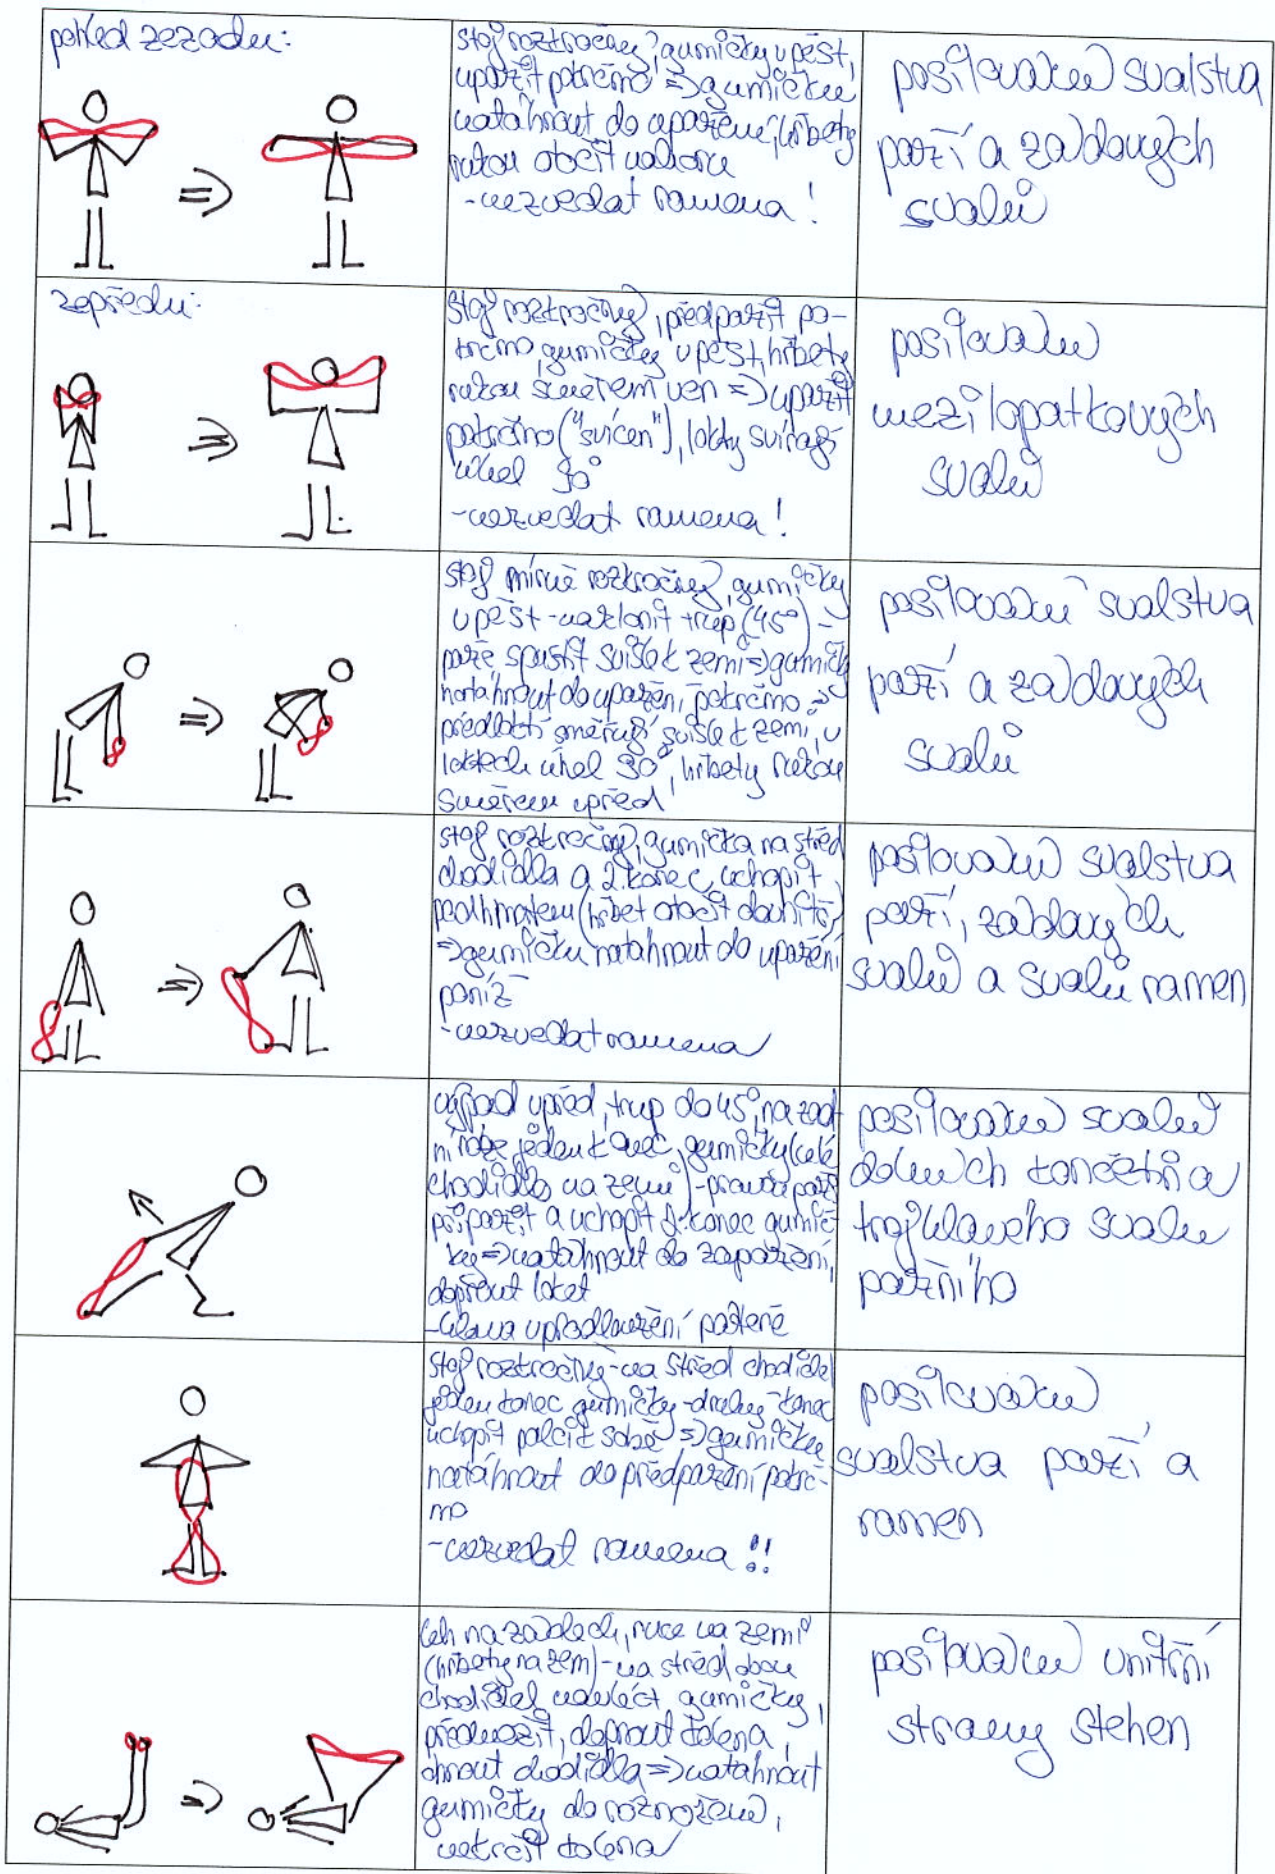 pohled zezadu:
stoj rozkročný, gumičky v pěst,
upažit pokrčmo => gumičku
natáhnout do upažení, hřbety
rukou otočit nahoru
-nezvedat ramena!
posilování svalstva
paží a zádových
svalů
zepředu:
stoj rozkročný, předpažit po-
krčmo, gumičky v pěst, hřbety
rukou směrem ven => upažit
pokrčmo ("svícen"), lokty svírají
úhel 90°
-nezvedat ramena!
posilování
mezilopatkových
svalů
stoj mírně rozkročný, gumičky
v pěst - naklonit trup (45°) -
paže spustit svisle k zemi => gumičk
natáhnout do upažení, pokrčmo =>
předloktí směřují svisle k zemi, v
loktech úhel 90°, hřbety rukou
směrem vpřed
posilování svalstva
paží a zádových
svalů
stoj rozkročný, gumička na střed
chodidla a 2. konec uchopit
podhmatem (hřbet otočit dovnitř)
=> gumičku natáhnout do upažení
poníž
-nezvedat ramena
posilování svalstva
paží, zádových
svalů a svalů ramen
výpad vpřed, trup do 45°, na zad
ní noze jeden konec gumičky (celé
chodidlo na zemi) - pravou paží
připažit a uchopit 2. konec gumič
ky => natáhnout do zapažení,
dopnout loket
-hlava v prodloužení páteře
posilování svalů
dolních končetin a
trojhlavého svalu
pažního
stoj rozkročný - na střed chodidel
jeden konec gumičky - druhý konec
uchopit palci k sobě => gumičku
natáhnout do předpažení pokrč-
mo
-nezvedat ramena!!
posilování
svalstva paží a
ramen
leh na zádech, ruce na zemi
(hřbety na zem) - na střed obou
chodidel navléct gumičky,
přednožit, dopnout kolena,
ohnout chodidla => natáhnout
gumičky do roznožení,
nekrčit kolena
posilování vnitřní
strany stehen